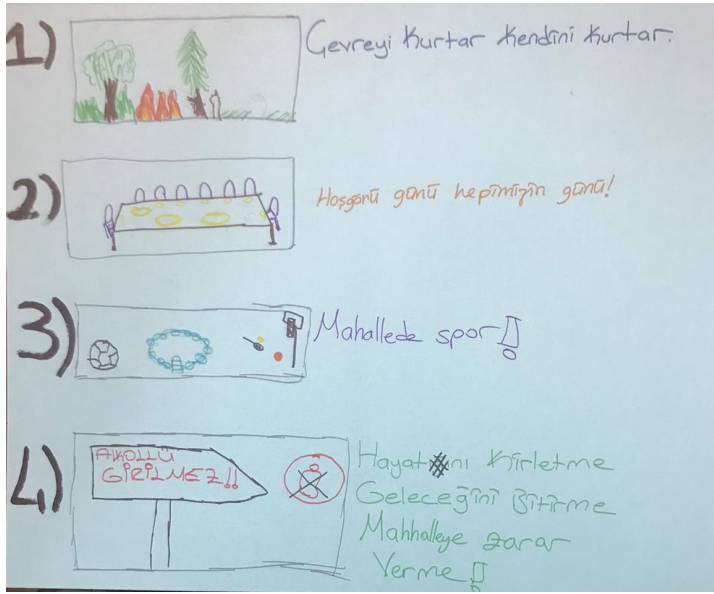 1) Çevreyi Kurtar Kendini Kurtar.
2) Hoşgörü günü hepimizin günü!
3) Mahallede spor!
4) ALKOLLÜ
GİRİLMEZ!!
Hayatını Kirletme
Geleceğini Bitirme
Mahhalleye zarar
Verme!